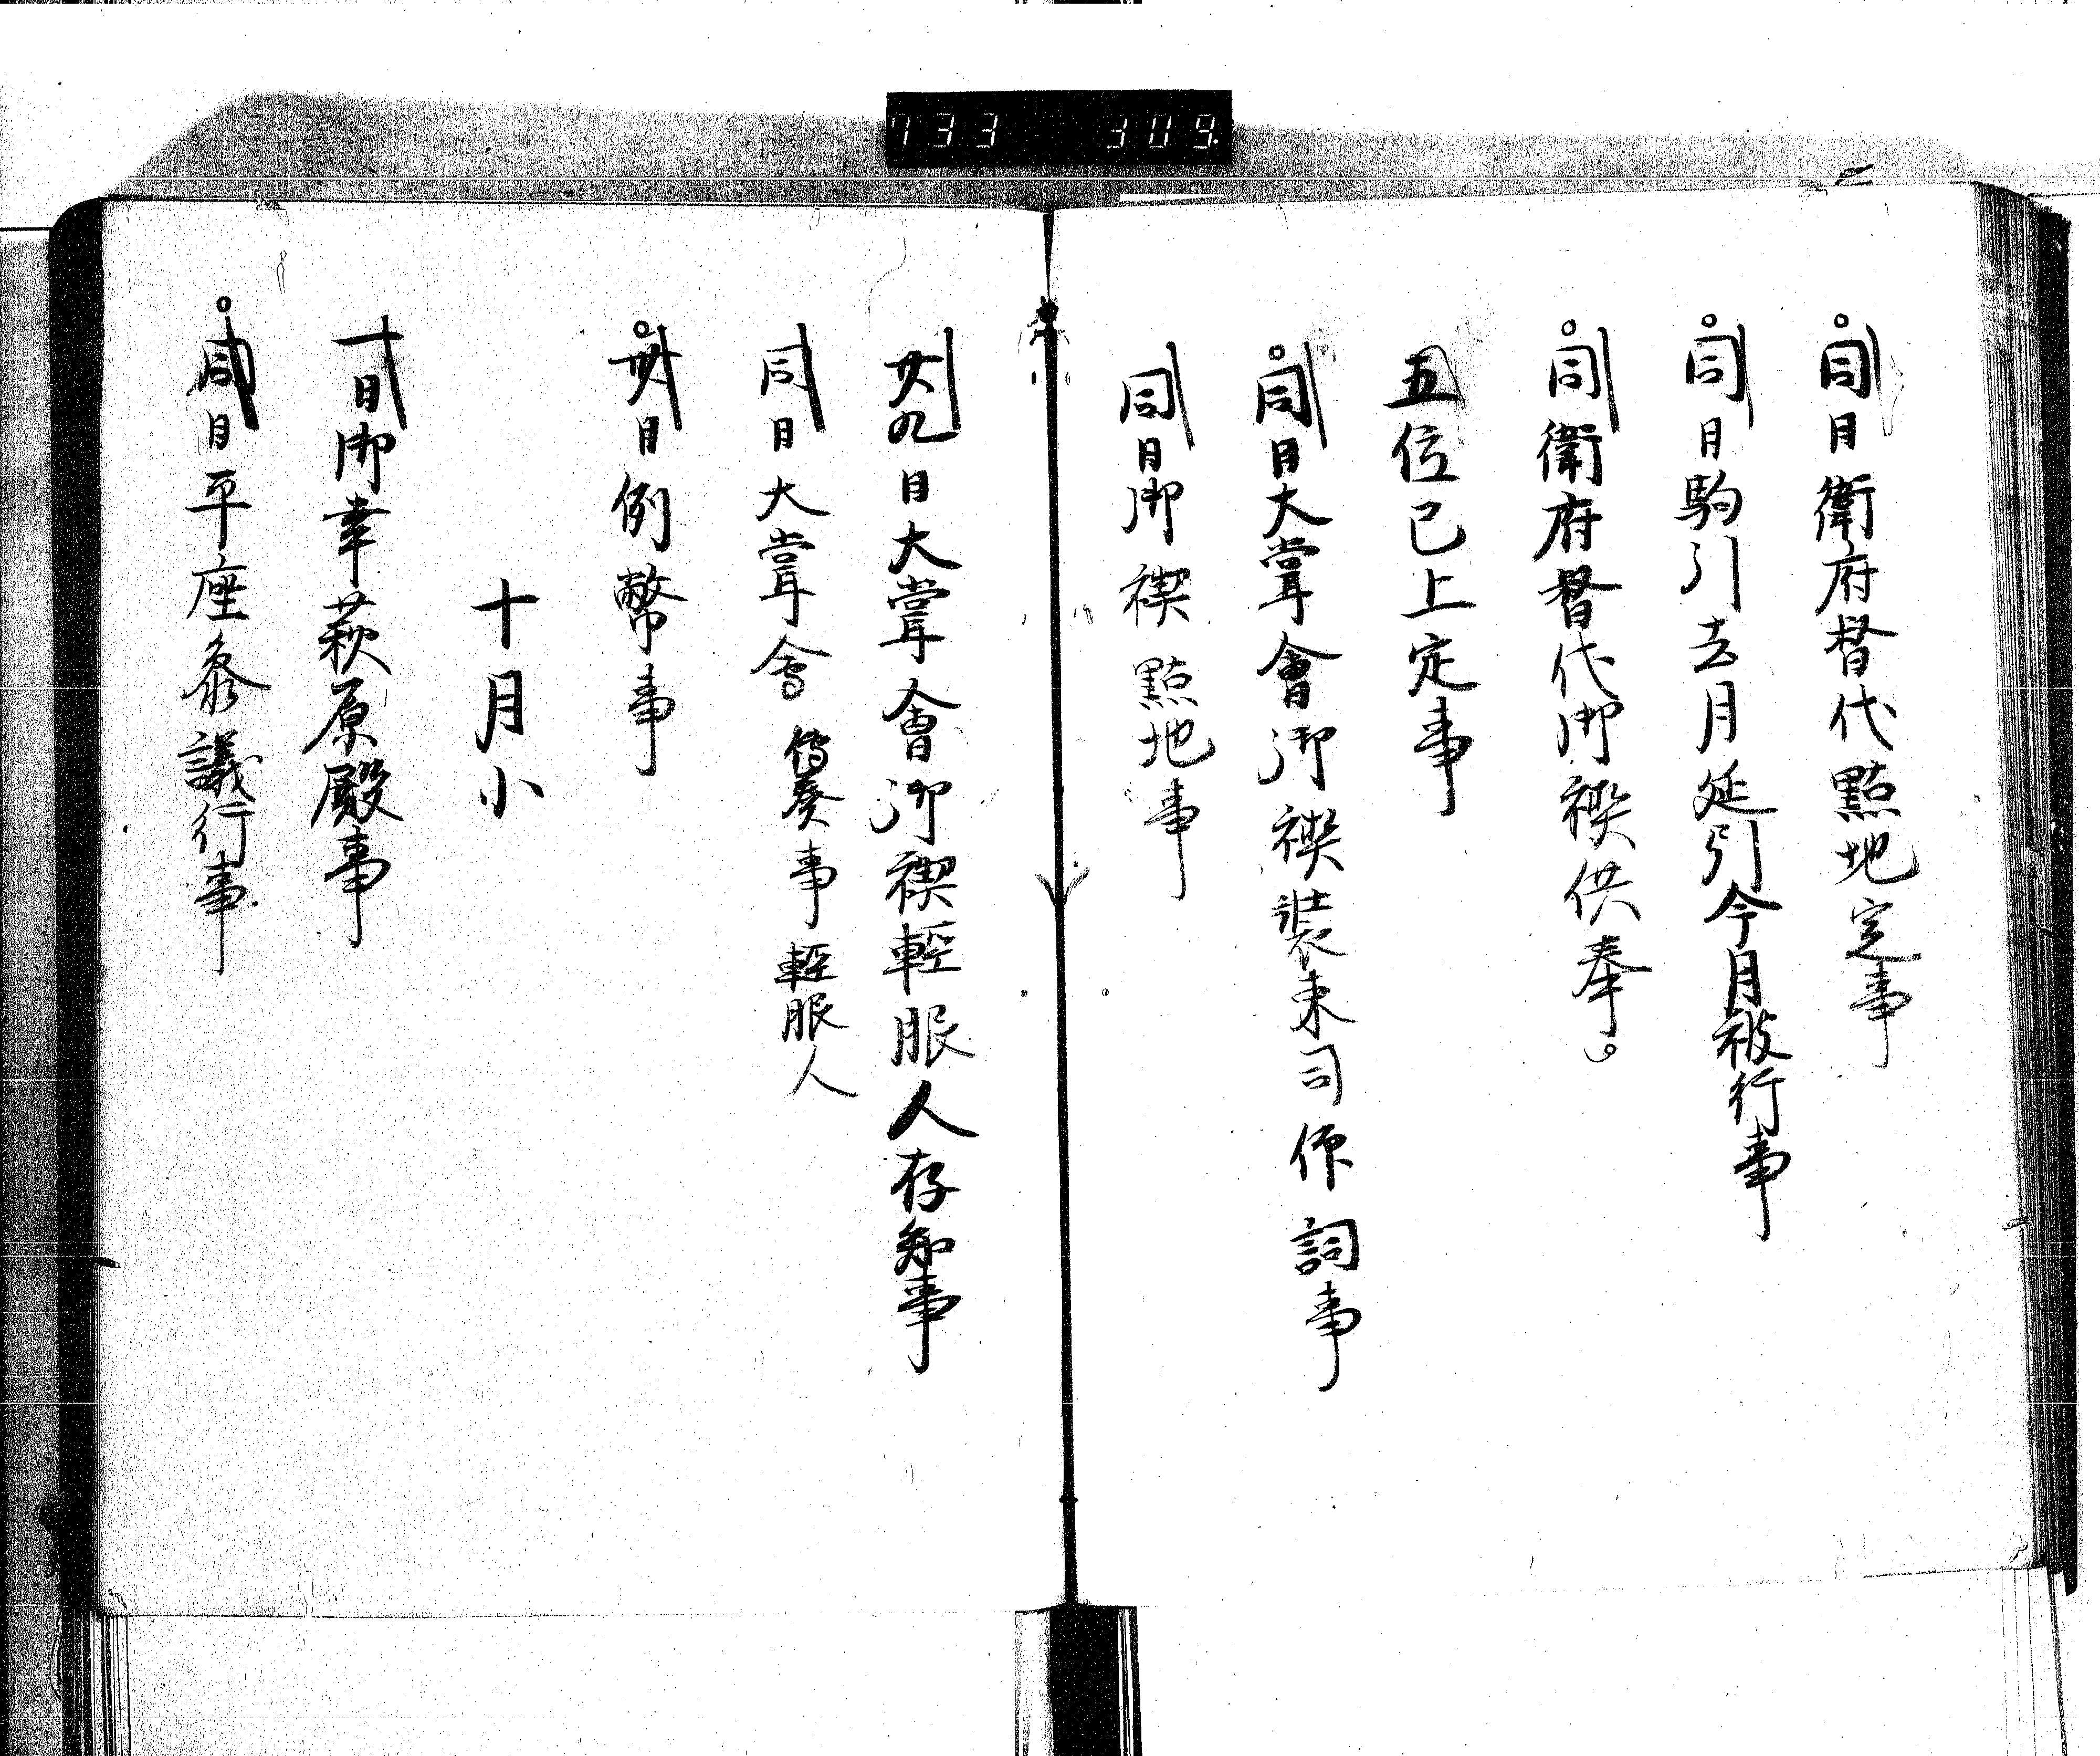 733 309
同日衛府督代點地定事
同日駒引去月延引今月被行事
同衛府督代御禊供奉
五位已上定事
同日大嘗會御禊裝束司作詞事
同日御禊點地事
廿九日大嘗會御禊輕服人存知事
同日大嘗會傳奏事輕服人
卅日例幣事
十月小
一日御幸萩原殿事
同日平座參議行事